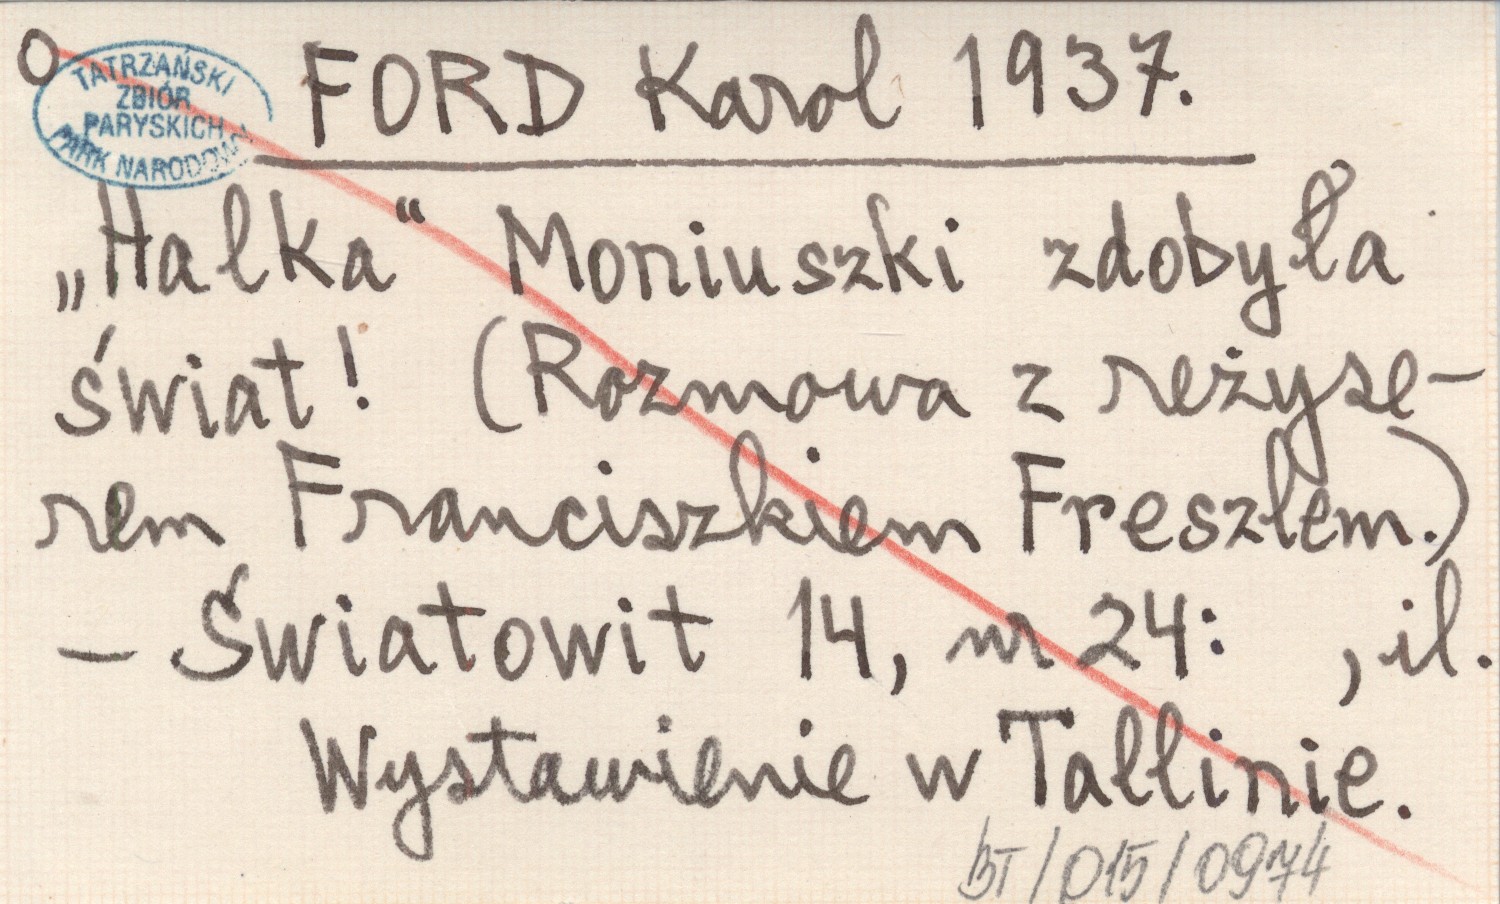 O
TATRZAŃSKI
ZBIÓR
PARYSKICH
PARK NARODOWY
FORD Karol 1937.
„Halka“ Moniuszki zdobyła
świat! (Rozmowa z reżyse-
rem Franciszkiem Freszlem.)
- Światowit 14, nr 24: , il.
Wystawienie w Tallinie.
BT/015/0974